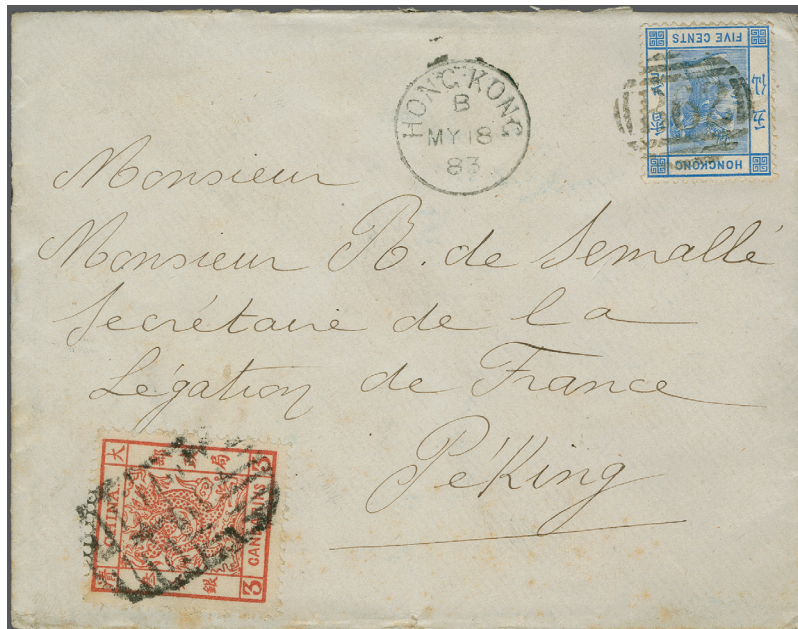 HONG KONG
B
MY 18
83
FIVE CENTS
HONGKONG
五 仙
Monsieur
Monsieur R. de Semallé
Secrétaire de la
Légation de France
PéKing
大
郵 局
CHINA
3 CANDARINS 3
銀